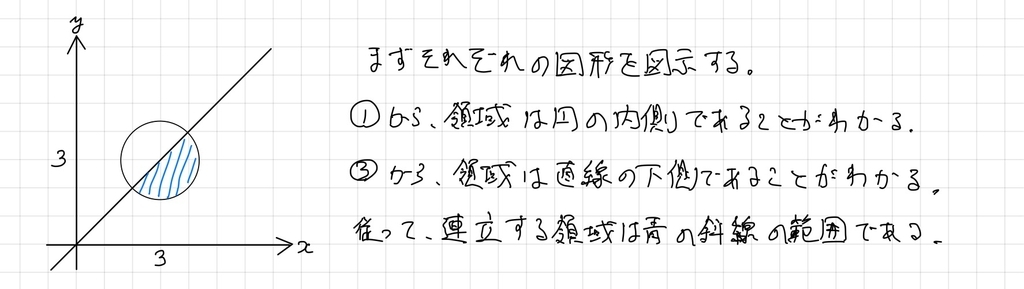 y
3
x
3
まずそれぞれの図形を図示する。
①から、領域は円の内側であることがわかる.
③から、領域は直線の下側であることがわかる.
従って、連立する領域は青の斜線の範囲である.